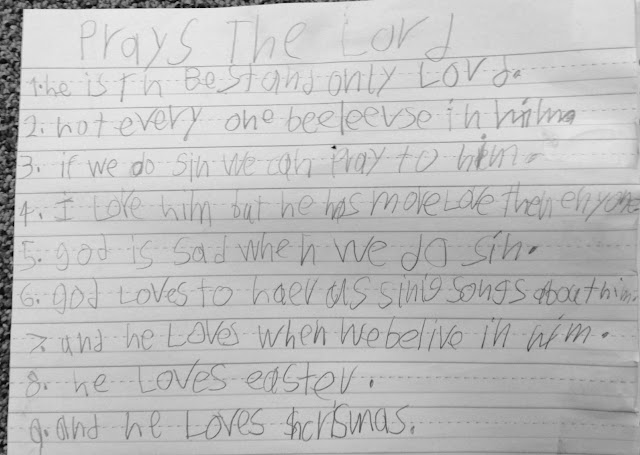 Prays The Lord
1. he is Th Best and only LOrd.
2. not every one beeleevse in him
3. if we do sin we can Pray to him.
4. I Love him but he has more Love then enyone
5. god is sad when we do sin.
6. god Loves to haer us sing songs about him.
7. and he Loves when we belive in him.
8. he Loves easter.
9. and he Loves